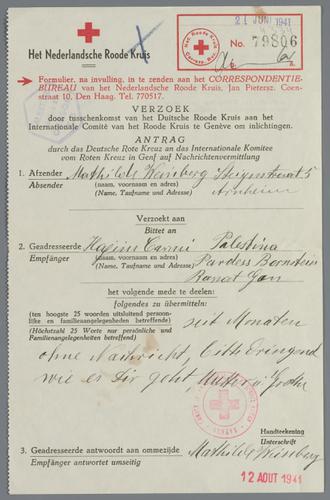 21 JUNI 1941
Het Nederlandsche Roode Kruis
No. 79806
Formulier, na invulling, in te zenden aan het CORRESPONDENTIE-
BUREAU van het Nederlandsche Roode Kruis, Jan Pietersz. Coen-
straat 10, Den Haag. Tel. 770517.
VERZOEK
door tusschenkomst van het Duitsche Roode Kruis aan het
Internationale Comité van het Roode Kruis te Genève om inlichtingen.
ANTRAG
durch das Deutsche Rote Kreuz an das Internationale Komitee
vom Roten Kreuz in Genf auf Nachrichtenvermittlung
1. Afzender Mathilde Weinberg
Absender (naam, voornaam en adres)
(Name, Taufname und Adresse) Arnheim
Verzoekt aan
Bittet an
2. Geadresseerde Palestina
Empfänger (naam, voornaam en adres) Pardess Bornstein
(Name, Taufname und Adresse) Ramat Gan
het volgende mede te deelen:
folgendes zu übermitteln:
(ten hoogste 25 woorden uitsluitend persoon-
lijke en familieangelegenheden betreffende) seit Monaten
(Höchstzahl 25 Worte nur persönliche und
Familienangelegenheiten betreffend)
ohne Nachricht, Bitte dringend
wie es Dir geht Mutter u.
Handteekening
Unterschrift
3. Geadresseerde antwoordt aan ommezijde Mathilde Weinberg
Empfänger antwortet umseitig
12 AOUT 1941